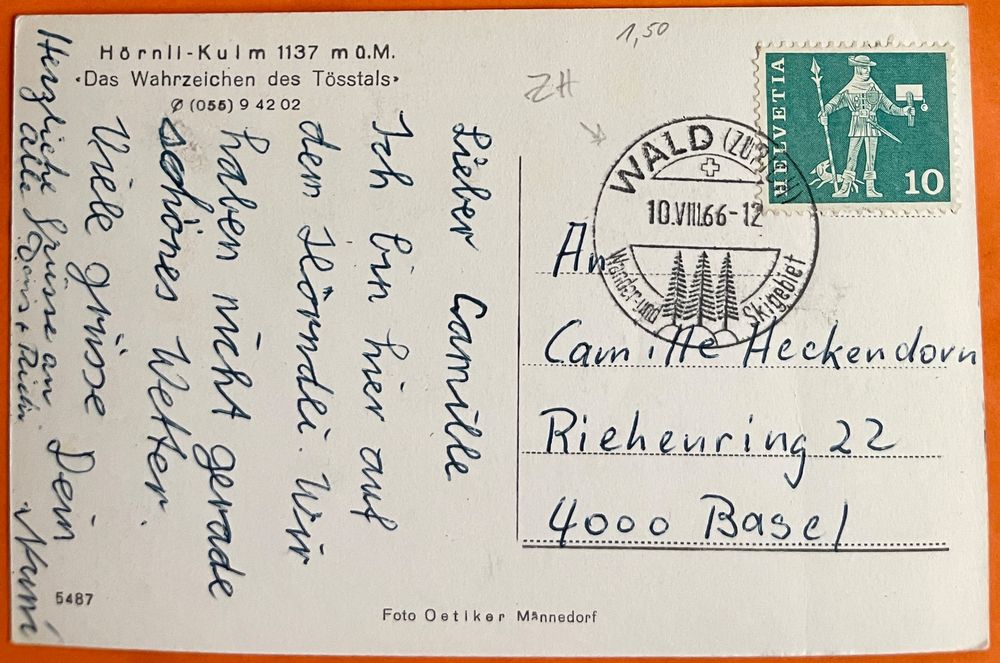 Hörnli-Kulm 1137 m ü.M.
‹Das Wahrzeichen des Tösstals›
✆ (055) 9 42 02
Lieber Camille
Ich bin hier auf
dem Hörndli. Wir
haben nicht gerade
schönes Wetter.
Viele grüsse Dein
Herzliche Grüsse an
alle
5487
Foto Oetiker Männedorf
1,50
ZH
HELVETIA
10
WALD (ZÜRICH)
10.VIII.66-12
Wander- und
Skigebiet
An
Camille Heckendorn
Riehenring 22
4000 Basel